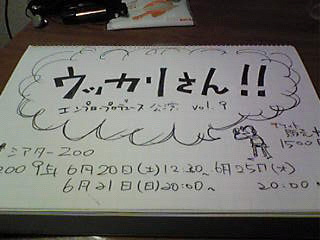 ウッカリさん!!
エンプロ・プロデュース公演 vol.9
チケット
販売
1500円
シアターZOO
2009年 6月20日(土)12:30~ 6月25日(木)
6月21日(日)20:00~ 20:00~